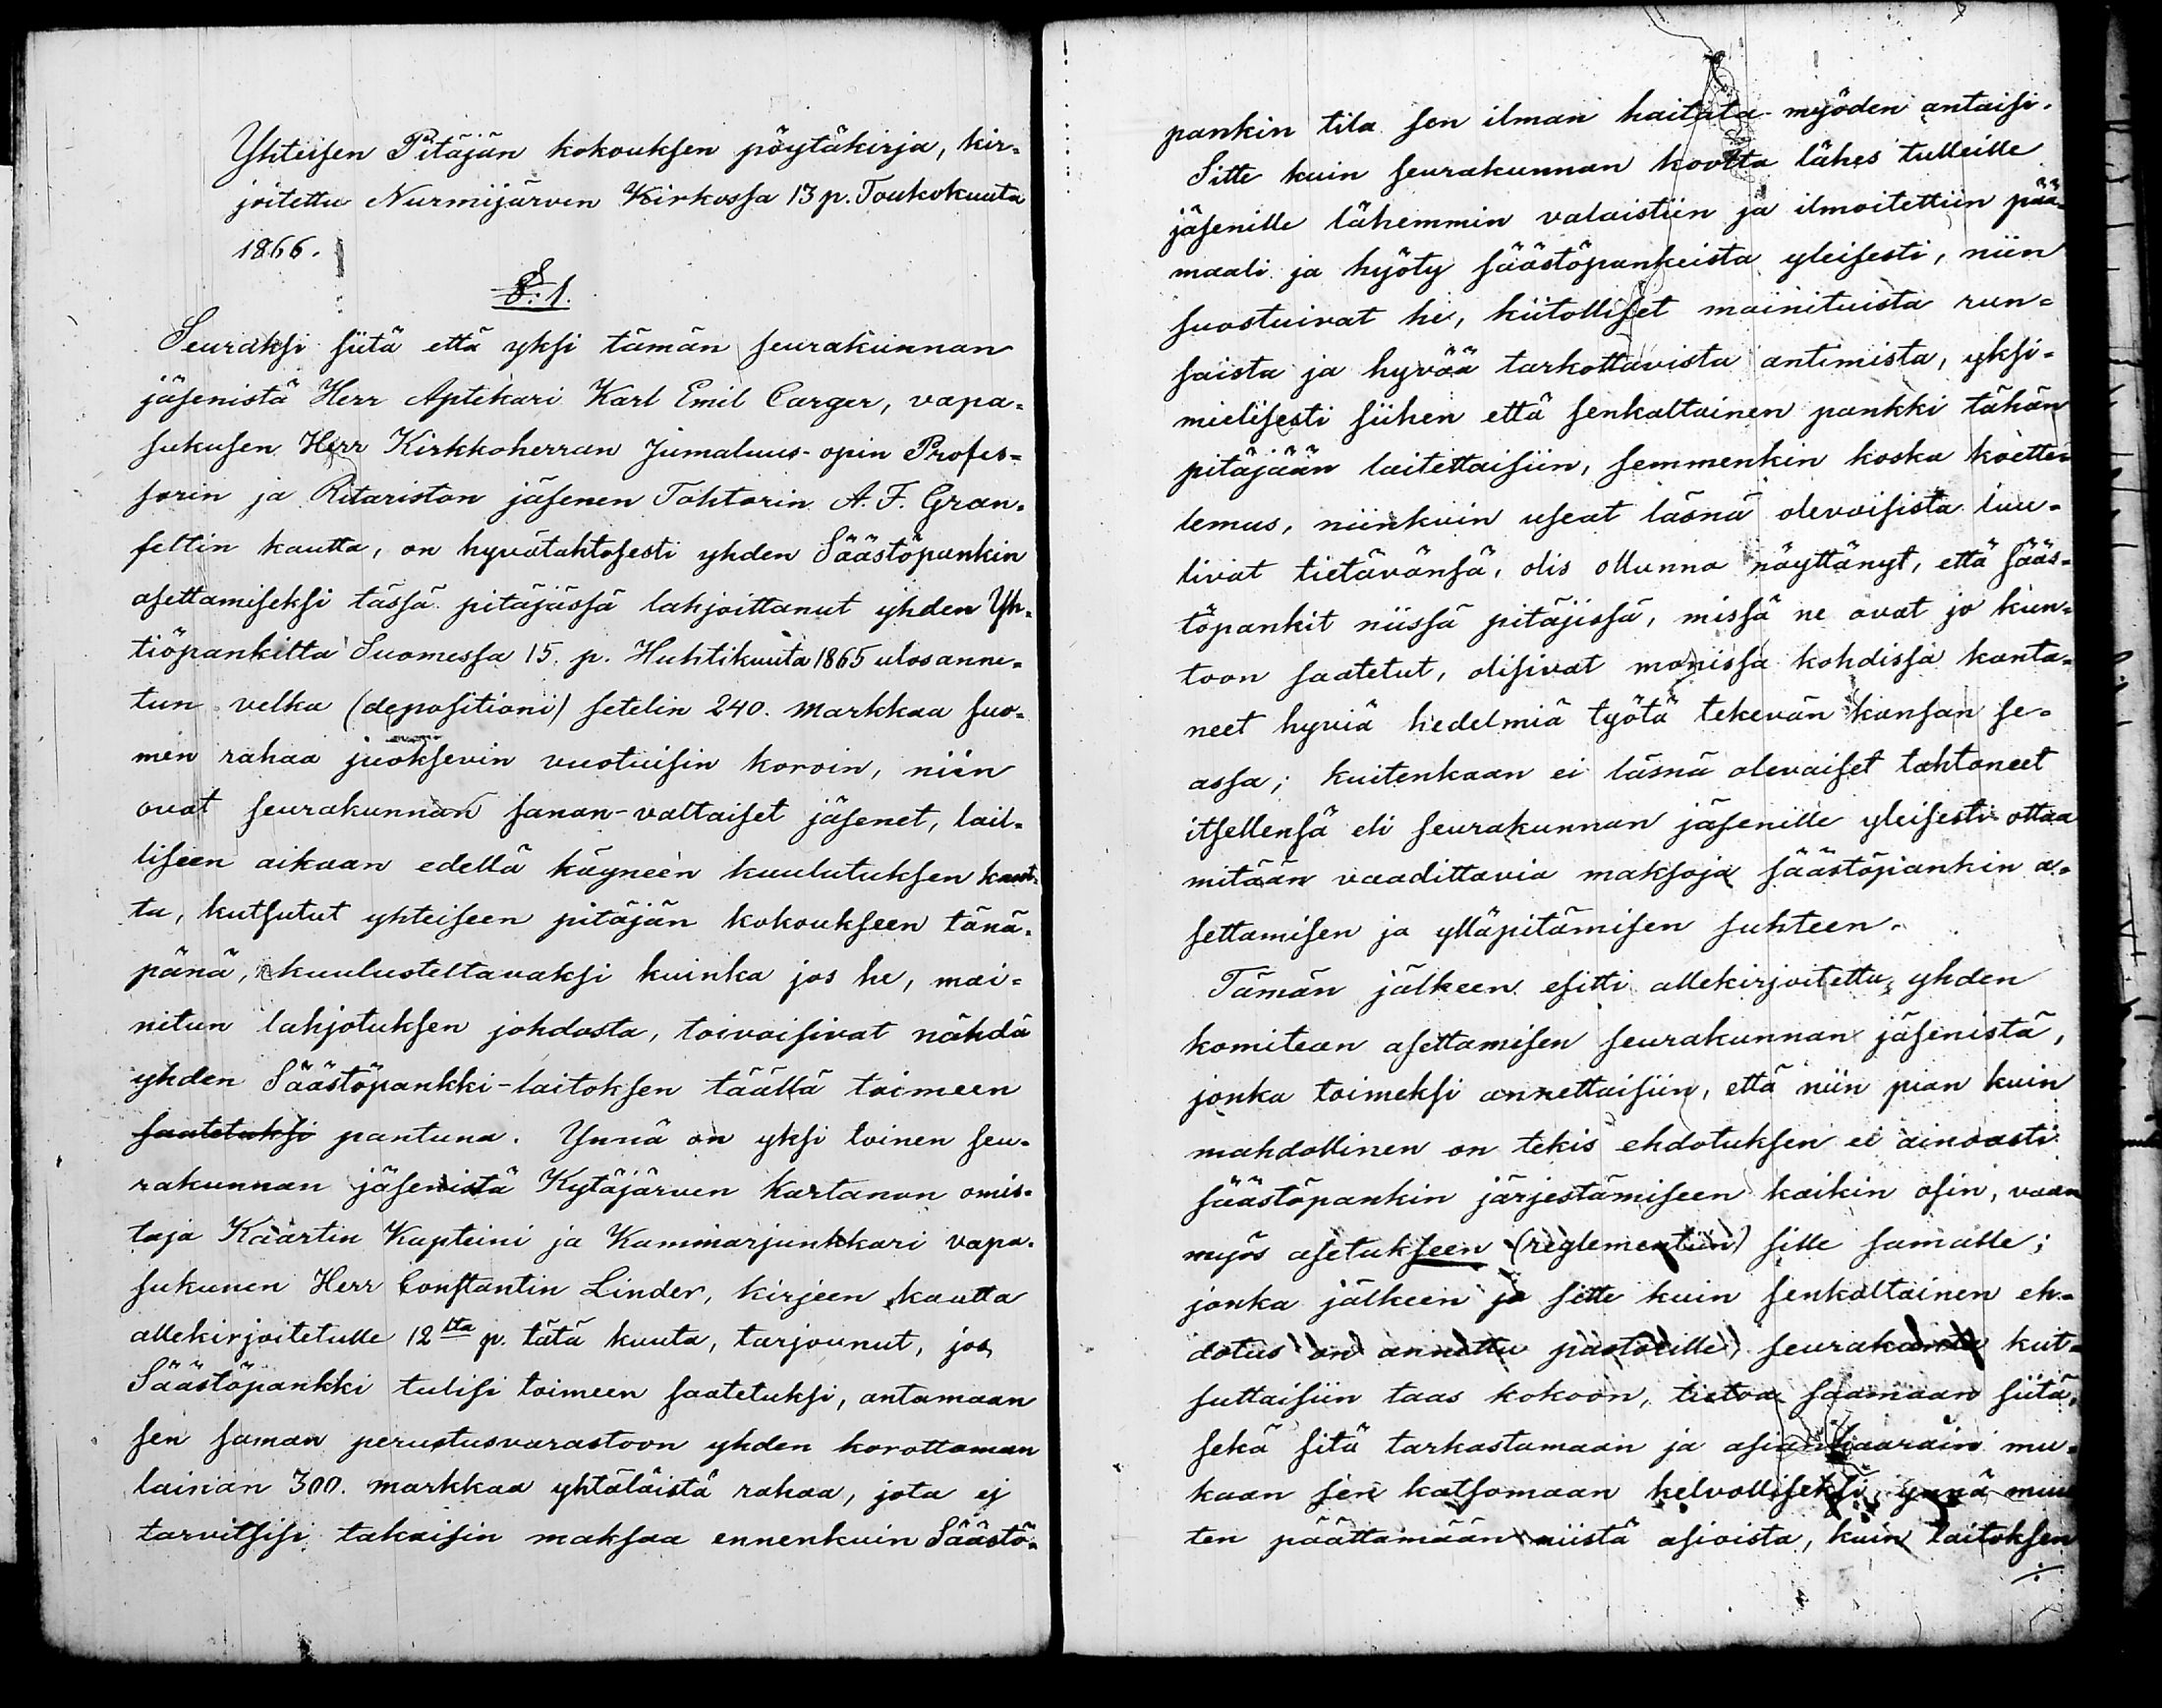 Yhteisen Pitäjän kokouksen pöytäkirja, kir-
joitettu Nurmijärven Kirkossa 13 p. Toukokuuta
1866.
§. 1.
Seuraksi siitä että yksi tämän seurakunnan
jäsenistä Herr Aptekari Karl Emil Carger, vapa-
sukusen Herr Kirkkoherran Jumaluus-opin Profes-
sorin ja Ritariston jäsenen Tohtorin A. F. Gran-
feltin kautta, on hyvätahtosesti yhden Säästöpankin
asettamiseksi tässä pitäjässä lahjoittanut yhden Yh-
tiöpankilta Suomessa 15. p. Huhtikuuta 1865 ulosanne-
tun velka (depositioni) setelin 240. markkaa Suo-
men rahaa juoksevin vuotuisin koroin, niin
ovat seurakunnan sanan-valtaiset jäsenet, lail-
liseen aikaan edellä käyneen kuulutuksen kaut-
ta, kutsutut yhteiseen pitäjän kokoukseen tänä-
pänä, kuulusteltavaksi kuinka jos he, mai-
nitun lahjotuksen johdosta, toivoisivat nähdä
yhden Säästöpankki-laitoksen täällä toimeen
saatetuksi pantuna. Ynnä on yksi toinen seu-
rakunnan jäsenistä Kytäjärven Kartanon omis-
taja Kaartin Kapteini ja Kammarjunkkari vapa-
sukunen Herr Constantin Linder, kirjeen kautta
allekirjoitetulle 12 sta p. tätä kuuta, tarjounut, jos
Säästöpankki tulisi toimeen saatetuksi, antamaan
sen saman perustusvarastoon yhden korottoman
lainan 300. markkaa yhtäläistä rahaa, jota ej
tarvitsisi takaisin maksaa ennenkuin Säästö-
pankin tila sen ilman haitata myöden antaisi.
Sitte kuin seurakunnan koolta lähes tulleille
jäsenille lähemmin valaistiin ja ilmoitettiin pää-
maali ja hyöty säästöpankeista yleisesti, niin
suostuivat he, kiitolliset mainituista run-
saista ja hyvää tarkottavista antimista, yksi-
mielisesti siihen että senkaltainen pankki tähän
pitäjään laitettaisiin, semmenkin koska koette-
lemus, niinkuin useat läsnä olevaisista luu-
livat tietävänsä, olis ollunna näyttänyt, että sääs-
töpankit niissä pitäjissä, missä ne ovat jo kun-
toon saatetut, olisivat monissa kohdissa kanta-
neet hyviä hedelmiä työtä tekevän kansan se-
assa; kuitenkaan ei läsnä olevaiset tahtoneet
itsellensä eli seurakunnan jäsenille yleisesti ottaa
mitään vaadittavia maksoja säästöpankin a-
settamisen ja ylläpitämisen suhteen.
Tämän jälkeen esitti allekirjoitettu yhden
komitean asettamisen seurakunnan jäsenistä,
jonka toimeksi annettaisiin, että niin pian kuin
mahdollinen on tekis ehdotuksen ei ainoasti
säästöpankin järjestämiseen kaikin osin, vaan
myös asetukseen (reglementiin) sille samalle;
jonka jälkeen ja sitte kuin senkaltainen eh-
dotus on annettu pastorille, seurakunta kut-
suttaisiin taas kokoon, tietoa saamaan siitä,
sekä sitä tarkastamaan ja asianhaarain mu-
kaan sen katsomaan kelvolliseksi, ynnä muu-
ten päättämään niistä asioista, kuin laitoksen